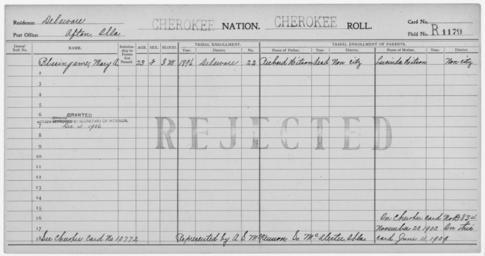 Residence: Delaware
Post Office: Afton, Okla.
CHEROKEE NATION. CHEROKEE ROLL.
Card No.
Field No. R 1179
Dawes' Roll No.
NAME.
Relationship to Person first Named
AGE.
SEX.
BLOOD.
TRIBAL ENROLLMENT.
Year.
District.
No.
TRIBAL ENROLLMENT OF PARENTS.
Name of Father.
Year.
District.
Name of Mother.
Year.
District.
1 Mary A. 23 F I W 1896 Delaware 22 Richard dead Non city Lucinda Non city
2
3
4
5
6 GRANTED
7 Dec 1906
REJECTED
8
9
10
11
12
13
14
15
16 On Cherokee card No D 834
17 November 22 1902 On this
18 See Cherokee Card No 10772 Represented by A. S. McKennon So McAlester Okla card June 11, 1904